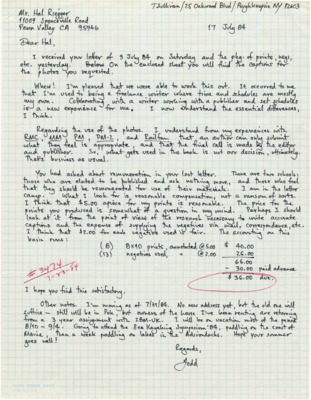 T Sullivan / 25 Oakwood Blvd / Poughkeepsie NY 12603
Mr. Hal Riegger
11009 Spenceville Road
Penn Valley CA 95946
17 July 84
Dear Hal,
I received your letter of 9 July 84 on Saturday and the pkg of prints, negs,
etc. yesterday. Below On the enclosed sheet you will find the captions for
the photos you requested.
Whew! I'm pleased that we were able to work this out. It occurred to me
that I'm used to being a freelance writer whose time and schedules are mostly
my own. Collaborating with a writer working with a publisher and set schedules
is a new experience for me, I now understand the essential differences,
I think.
Regarding the use of the photos I understand from my experiences with
RMC, MM, PM, PM-I and Railfan that an author can only submit
what they feel is appropriate, and that the final call is made by the editor
and publisher. So, what gets used in the book is not our decision, ultimately.
That's business as usual.
You had asked about remuneration in your last letter. There are two schools:
those who are elated to be published and ask nothing more, and those who feel
that they should be remunerated for use of their materials. I am in the latter
camp. What I look for is reasonable compensation, not a ransom of sorts.
I think that $5.00 apiece for my prints is reasonable. The price for the
prints you produced is somewhat of a question in my mind. Perhaps I should
look at it from the point of view of the research necessary to write accurate
captions and the expense of supplying the negatives via mail, correspondence, etc.
I think that $2.00 for each negative used is fair. The accounting on this
basis runs:
(8) 8x10 prints, annotated @ 5.00 $ 40.00
(13) negatives used, @ 2.00 26.00
66.00
- 30.00 paid advance
$ 36.00 due.
# 3474
7-23-84
I hope you find this satisfactory.
Other notes. I'm moving as of 7/31/84. No new address yet, but the old one will
suffice - still will be in Pok, but owners of the house I've been renting are returning
from a 3 year assignment with IBM-UK. I will be on vacation most of the period
8/10 - 9/4. Going to attend the Sea Kayaking Symposium '84, paddling on the coast of
Maine, then a week paddling on lakes in the Adirondacks. Hope your summer
goes well!
Regards,
Todd